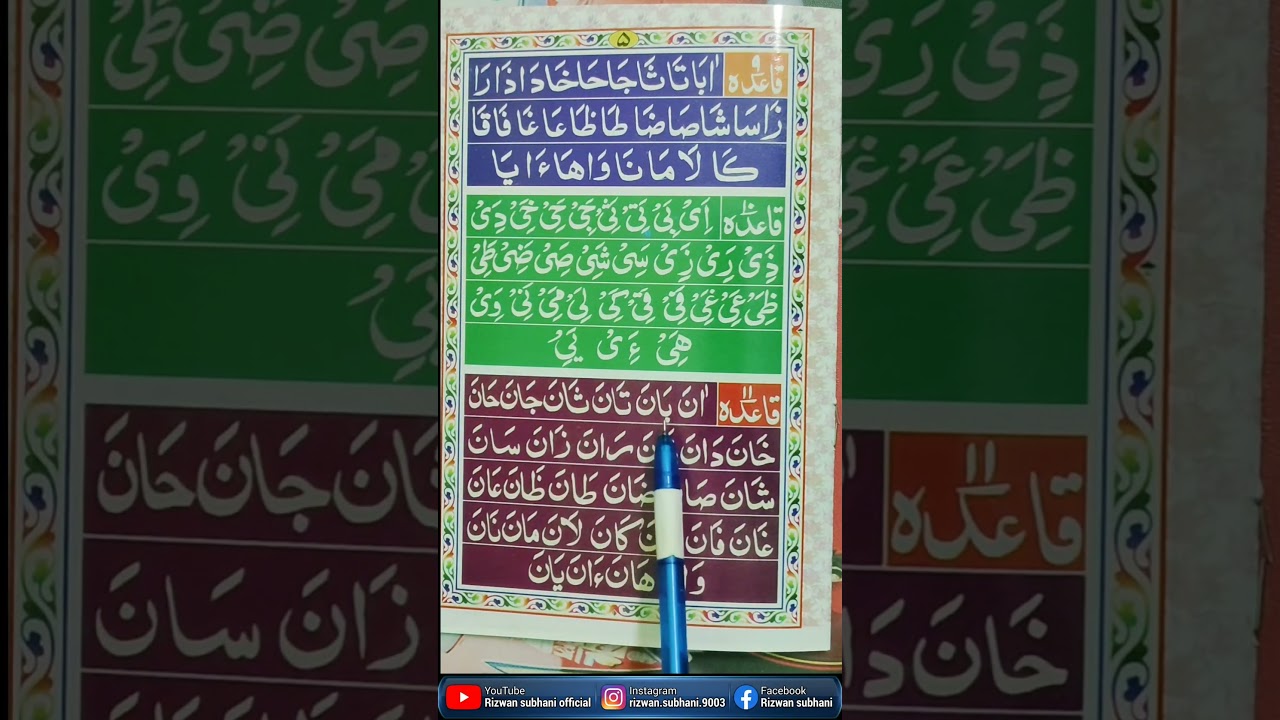 ۵
قاعدہ ۹ اٰ بَا تَا ثَا جَا حَا خَا دَا ذَا رَا
زَا سَا شَا صَا ضَا طَا ظَا عَا غَا فَا قَا
کَا لَا مَا نَا وَا هَا ءَا یَا
قاعدہ ۱۰ اِیْ بِیْ تِیْ ثِیْ جِیْ حِیْ خِیْ دِیْ
ذِیْ رِیْ زِیْ سِیْ شِیْ صِیْ ضِیْ طِیْ
ظِیْ عِیْ غِیْ فِیْ قِیْ کِیْ لِیْ مِیْ نِیْ وِیْ
هِیْ ءِیْ یِیْ
قاعدہ ۱۱ اٰنَ بَانَ تَانَ ثَانَ جَانَ حَانَ
خَانَ دَانَ رَانَ زَانَ سَانَ
شَانَ ضَانَ طَانَ ظَانَ عَانَ
غَانَ فَانَ کَانَ لَانَ مَانَ نَانَ
هَانَ ءَانَ یَانَ
YouTube
Rizwan subhani official
Instagram
rizwan.subhani.9003
Facebook
Rizwan subhani